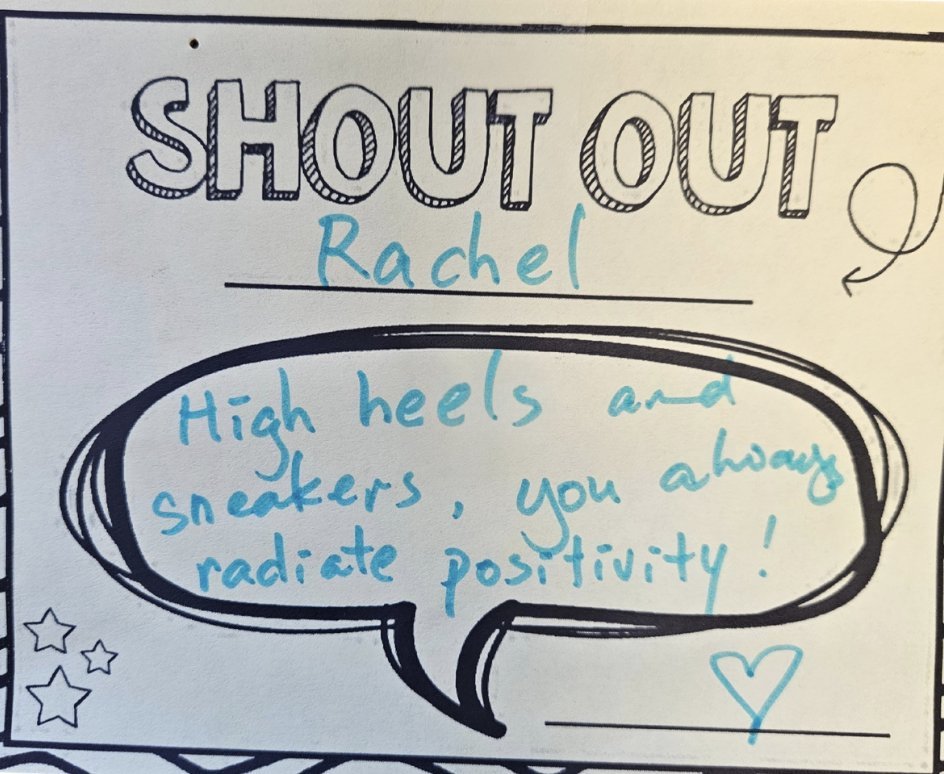 SHOUT OUT
Rachel
High heels and
sneakers, you always
radiate positivity!